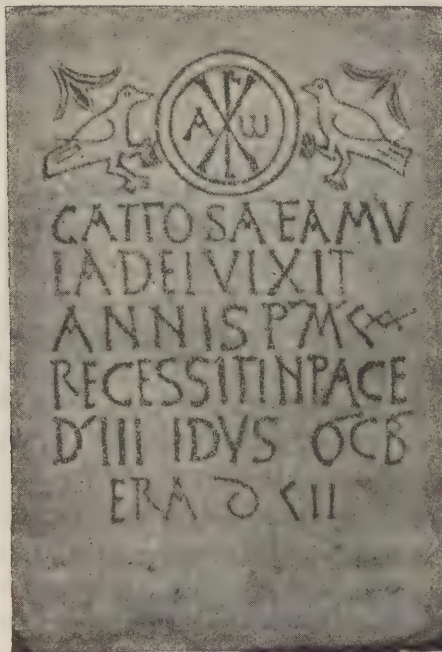 Α ω
CATTOSA FAMV
LA DEI VIXIT
ANNIS P M
RECESSIT IN PACE
D III IDVS OCB
ERA DCII